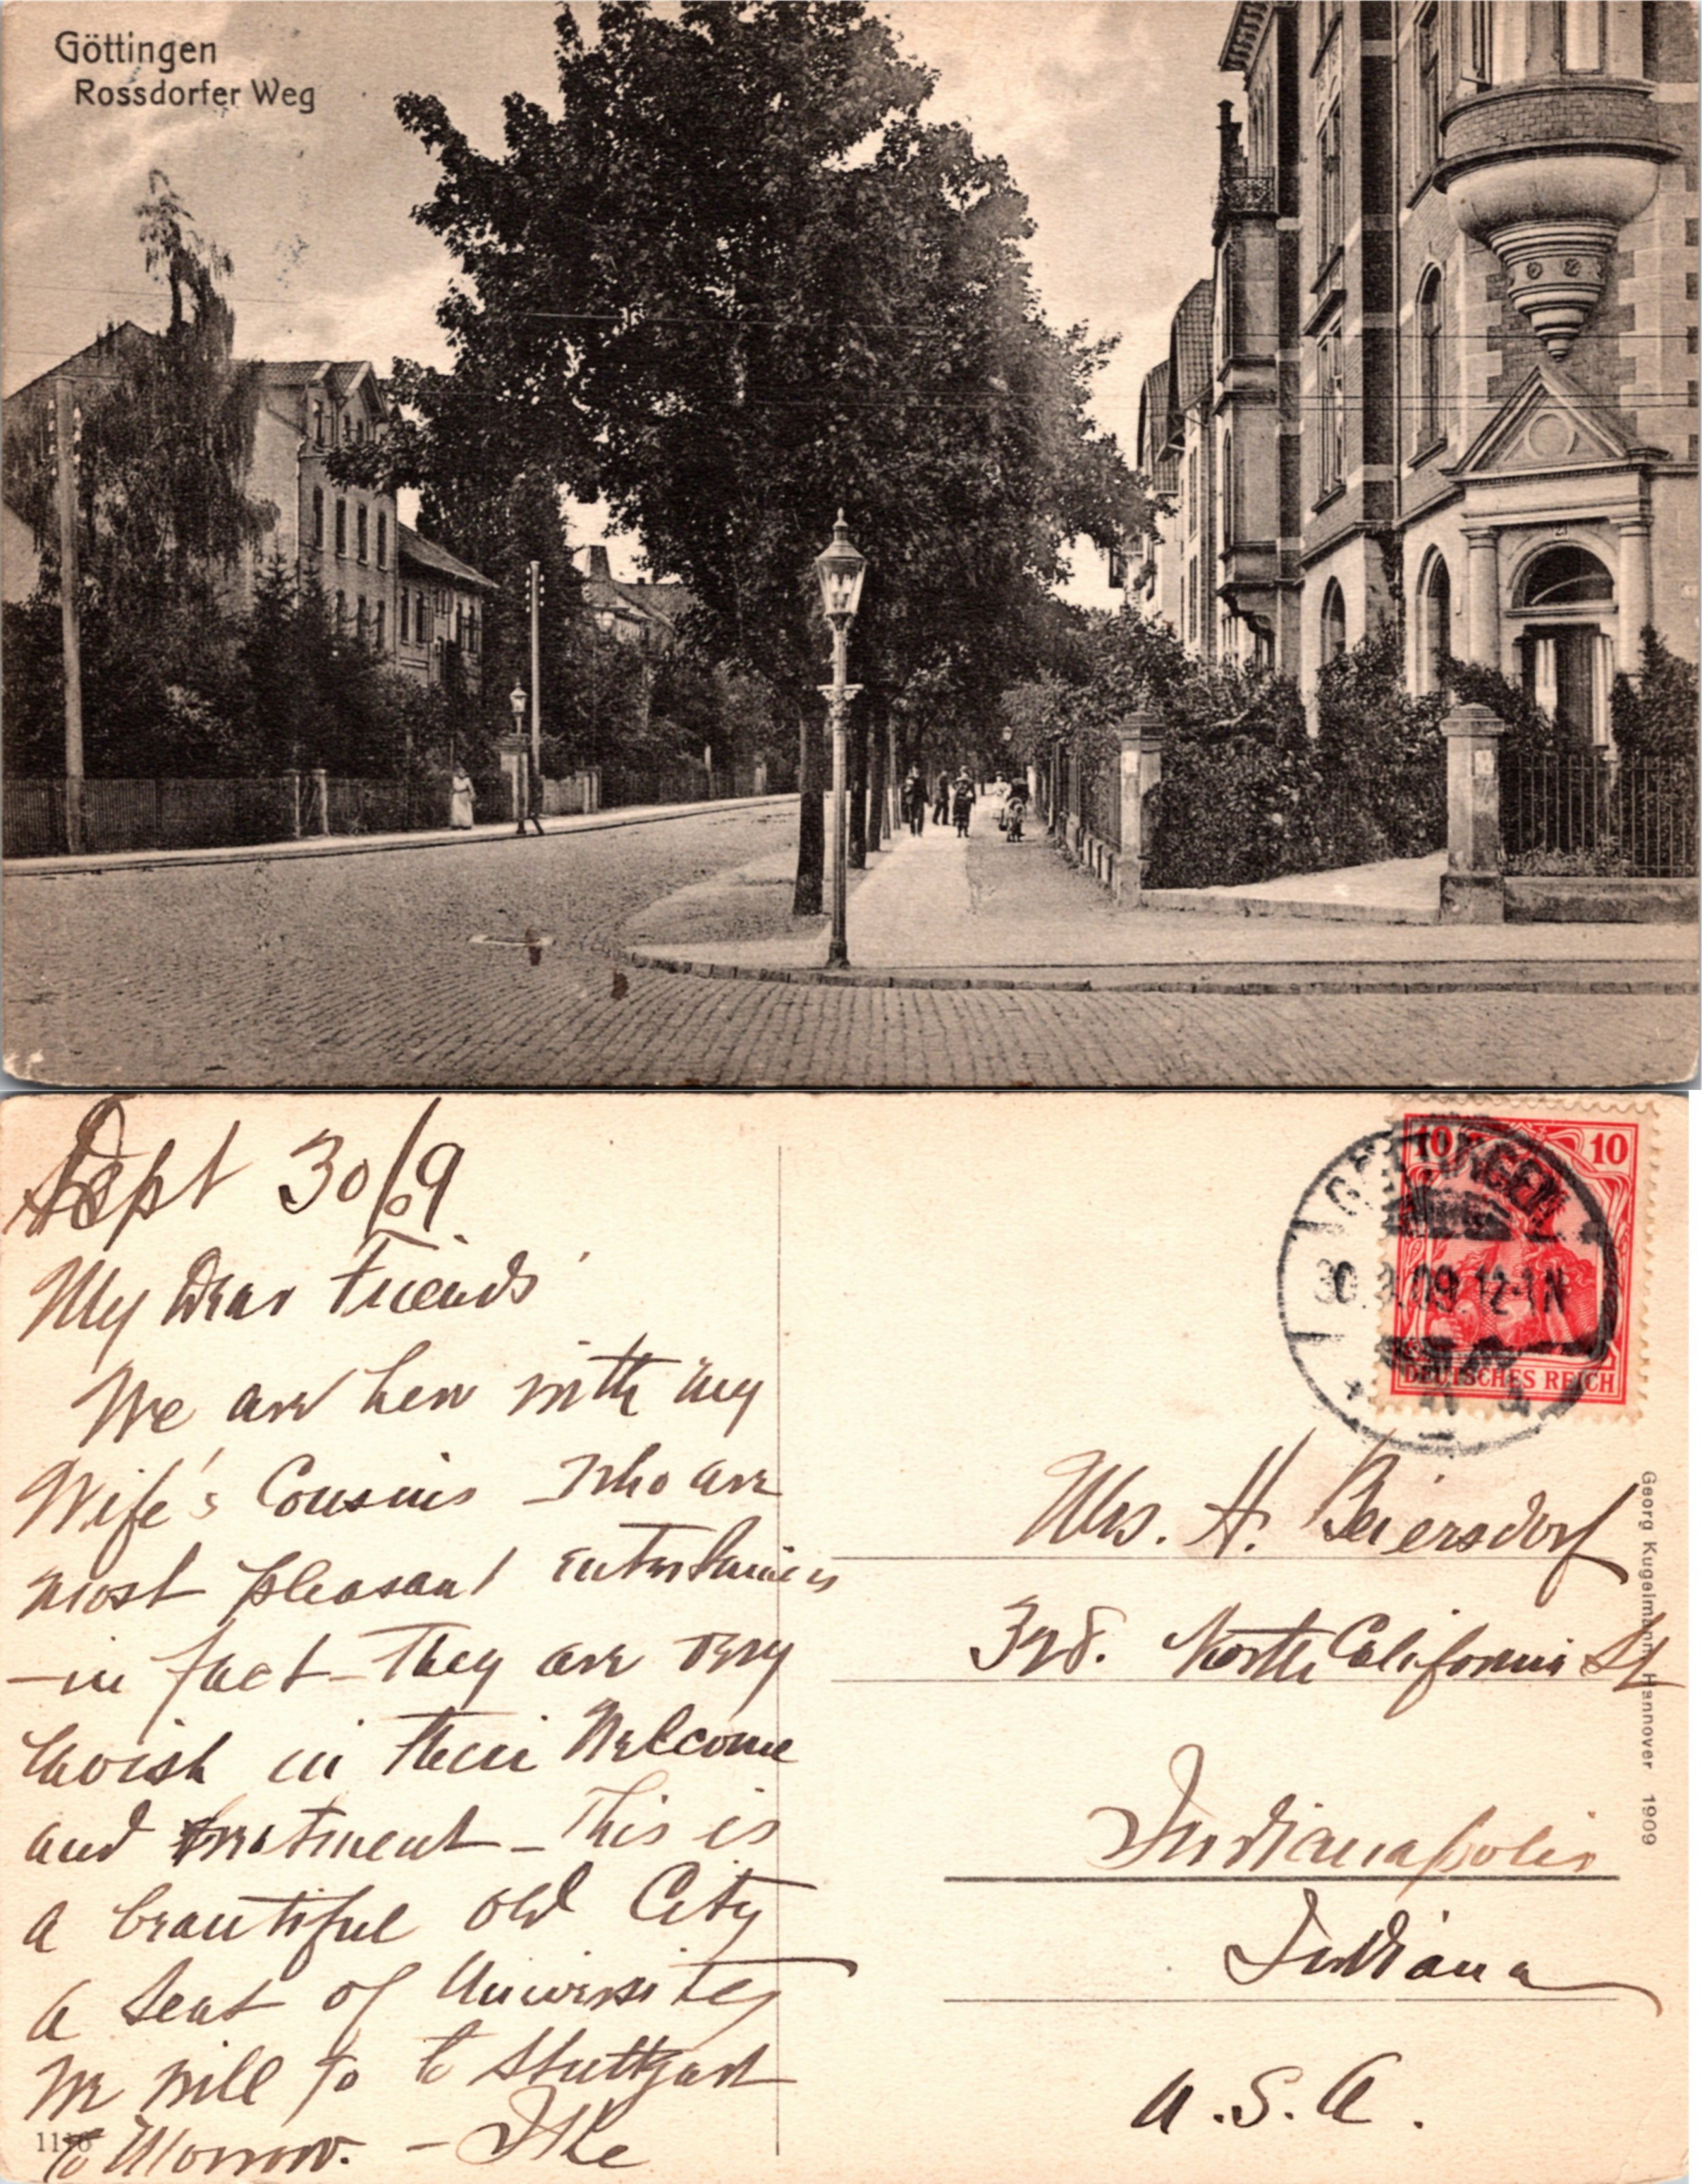 Göttingen
Rossdorfer Weg
Sept 30/09
My Dear Friends
We are here with my
Wife's Cousins who are
most pleasant entertainers
- in fact - They are very
lavish in their Welcome
and treatment - This is
a beautiful old City
a Seat of University
We will go to Stuttgart
to Morrow. - Ike
1116
10 10
GÖTTINGEN
30.9.09 12-1N
DEUTSCHES REICH
Mrs. H. Beiersdorf
328. North California St
Indianapolis
Indiana
U.S.A.
Georg Kugelmann, Hannover 1909